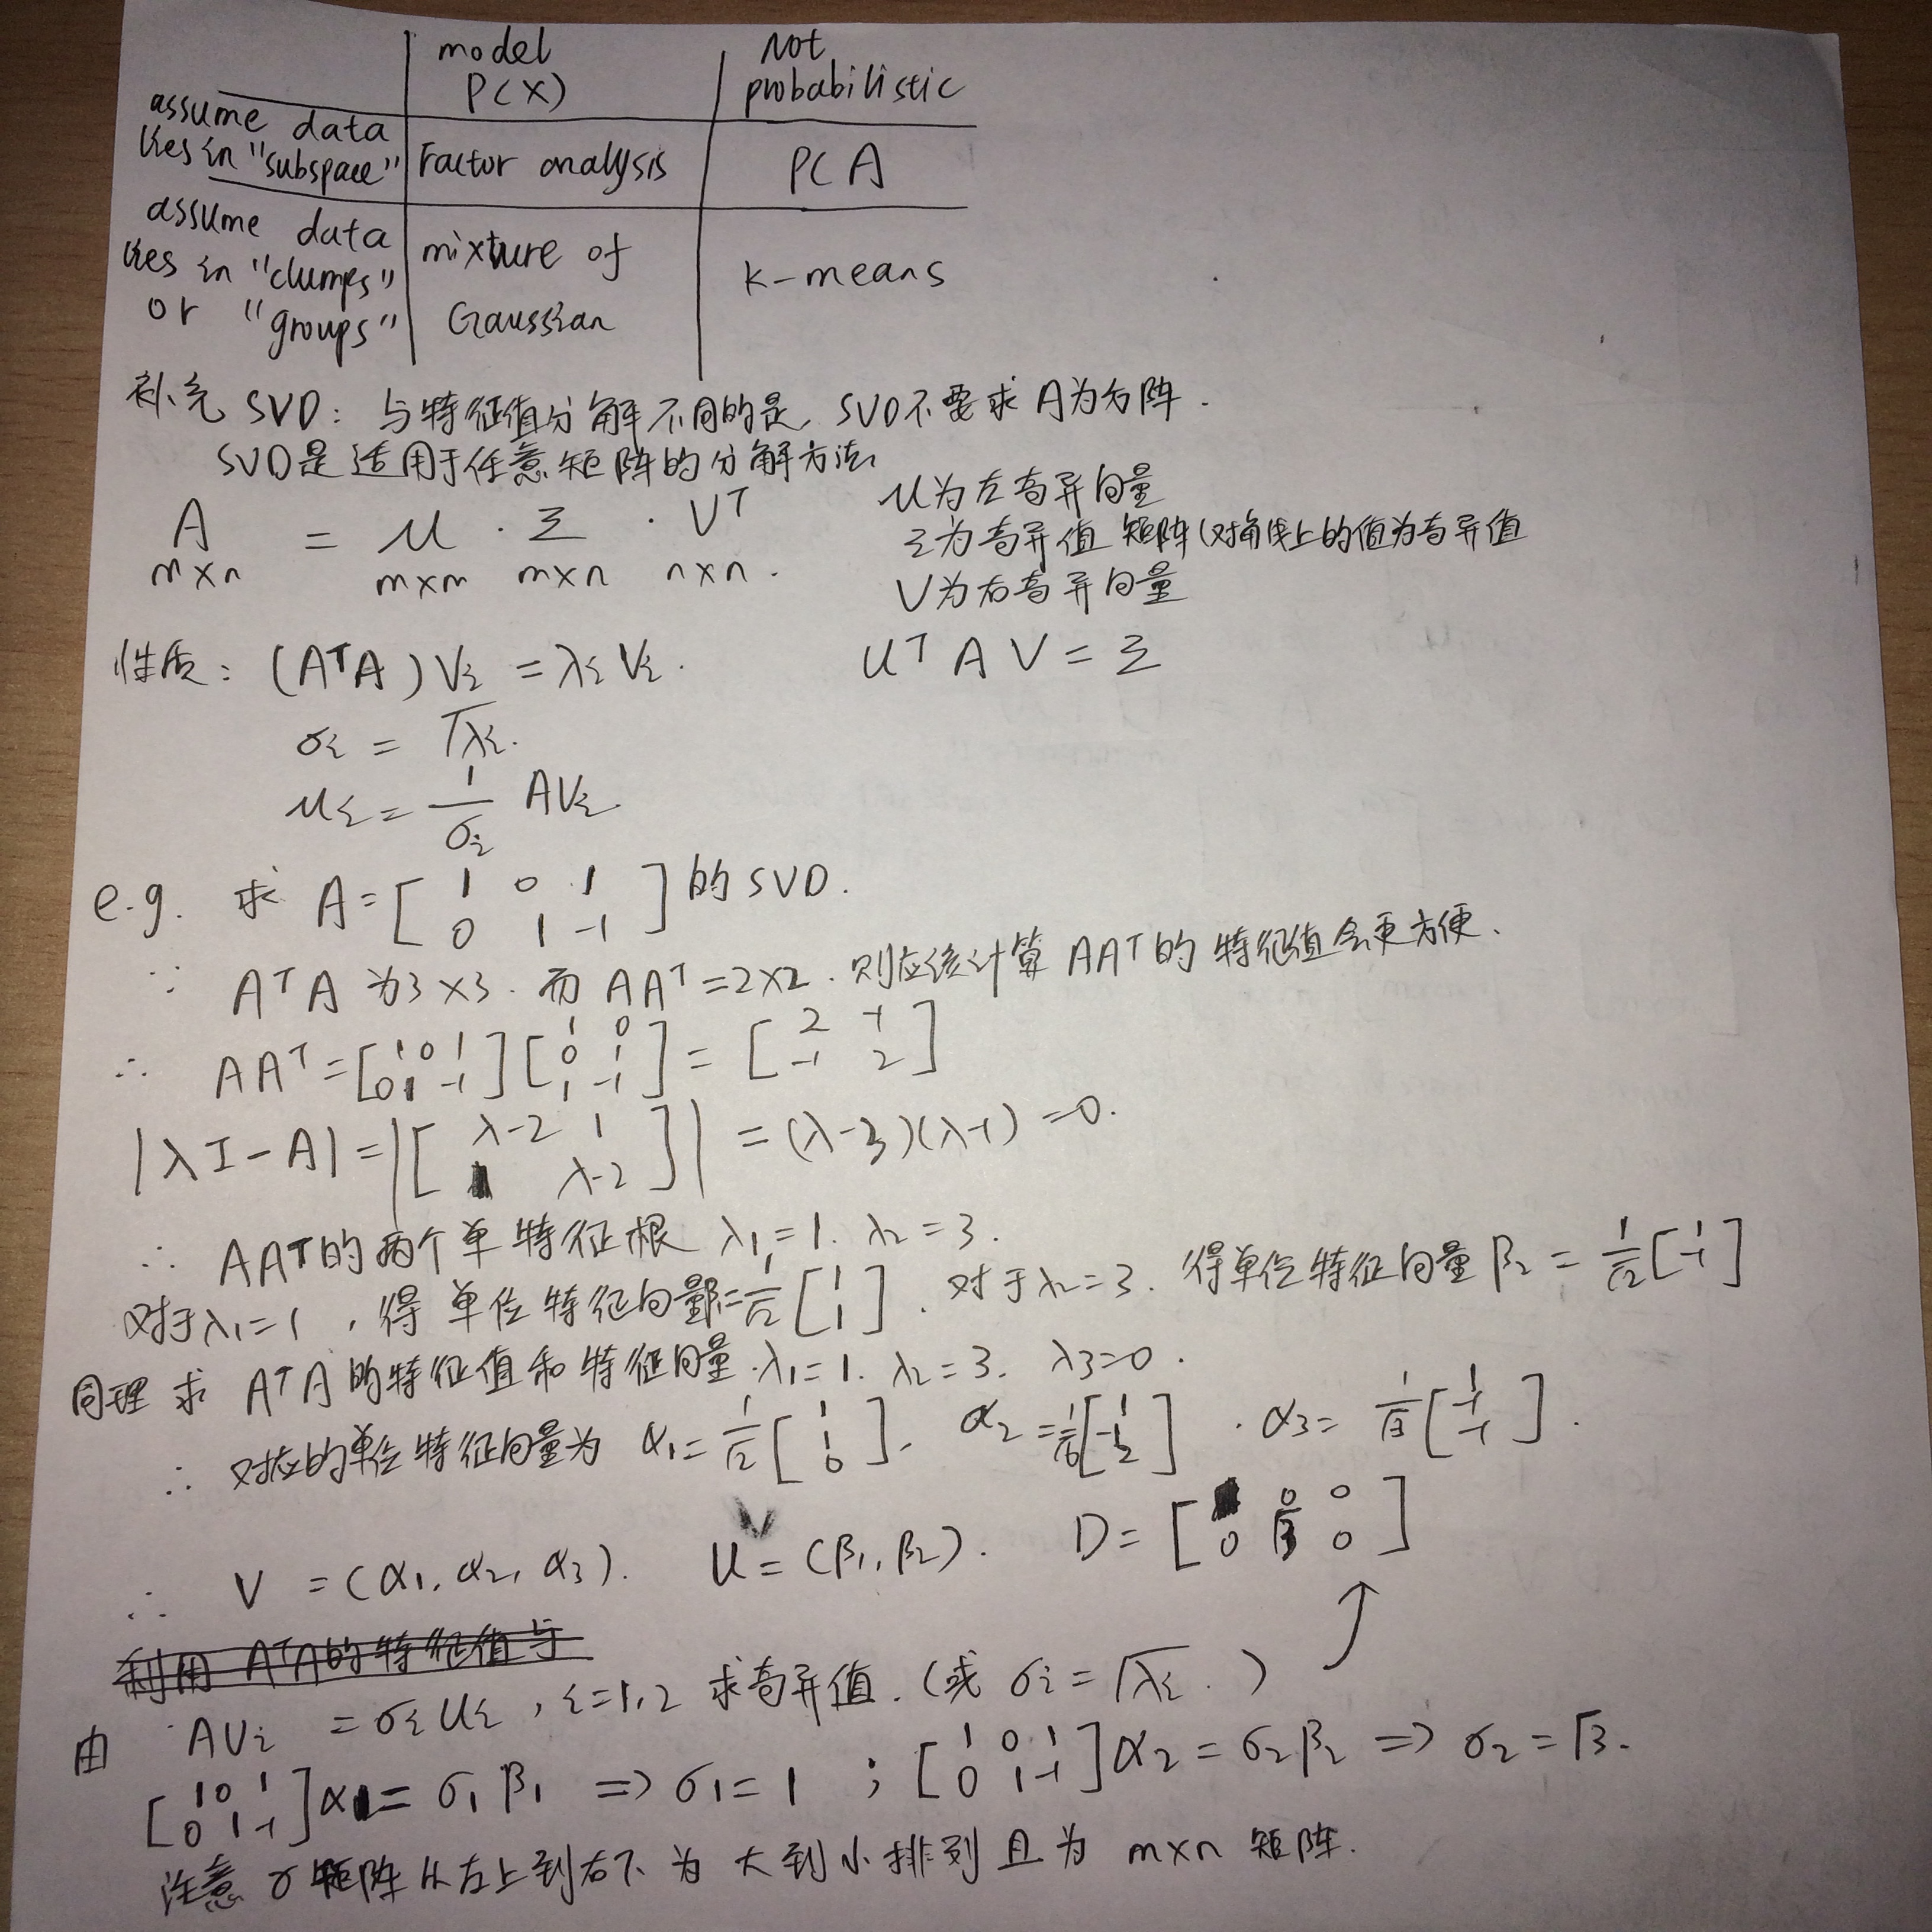 model P(X)
Not probabilistic
assume data lies in "subspace"
Factor analysis
PCA
assume data lies in "clumps" or "groups"
mixture of Gaussian
k-means
补充 SVD: 与特征值分解不同的是, SVD不要求A为方阵.
SVD是适用于任意矩阵的分解方法
A = U · Σ · V^T
m×n m×m m×n n×n.
U为左奇异向量
Σ为奇异值矩阵(对角线上的值为奇异值
V为右奇异向量
性质: (A^T A)V_i = λ_i V_i.
U^T A V = Σ
σ_i = √λ_i.
u_i = 1/σ_i AV_i.
e.g. 求 A = [1 0 1; 0 1 -1] 的SVD.
∵ A^T A 为3×3. 而 AA^T = 2×2. 则应该计算 AA^T 的特征值会更方便.
∴ AA^T = [1 0 1; 0 1 -1][1 0; 0 1; 1 -1] = [2 -1; -1 2]
|λI-A| = |[λ-2 1; 1 λ-2]| = (λ-3)(λ-1) = 0.
∴ AA^T的两个单特征根 λ1=1. λ2=3.
对于λ1=1, 得单位特征向量β1=1/√2 [1; 1]. 对于λ2=3. 得单位特征向量 β2 = 1/√2 [1; -1]
同理求 A^T A 的特征值和特征向量. λ1=1. λ2=3. λ3=0.
∴ 对应的单位特征向量为 α1= 1/√2 [1; 1; 0], α2 = 1/√6 [1; -1; 2] . α3= 1/√3 [1; -1; -1].
∴ V = (α1, α2, α3). U = (β1, β2). D = [0 0; 0 √3 0]
利用 A^T A的特征值与
由 AV_i = σ_i U_i, i=1,2 求奇异值. (或 σ_i = √λ_i.)
[1 0 1; 0 1 -1]α1 = σ1 β1 => σ1 = 1 ; [1 0 1; 0 1 -1]α2 = σ2 β2 => σ2 = √3.
注意 σ 矩阵从左上到右下为 大到小排列且为 m×n 矩阵.